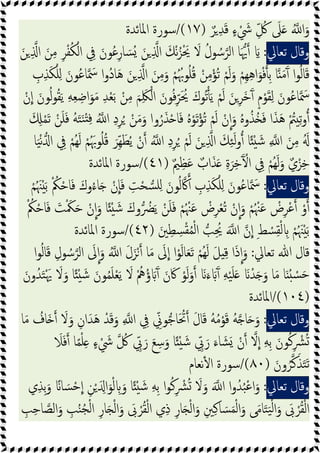 وَاللَّهُ عَلَى كُلِّ شَيْءٍ قَدِيرٌ (١٧)/سورة المائدة
وقال تعالى: يَا أَيُّهَا الرَّسُولُ لَا يَحْزُنْكَ الَّذِينَ يُسَارِعُونَ فِي الْكُفْرِ مِنَ الَّذِينَ
قَالُوا آمَنَّا بِأَفْوَاهِهِمْ وَلَمْ تُؤْمِنْ قُلُوبُهُمْ وَمِنَ الَّذِينَ هَادُوا سَمَّاعُونَ لِلْكَذِبِ
سَمَّاعُونَ لِقَوْمٍ آخَرِينَ لَمْ يَأْتُوكَ يُحَرِّفُونَ الْكَلِمَ مِنْ بَعْدِ مَوَاضِعِهِ يَقُولُونَ إِنْ
أُوتِيتُمْ هَذَا فَخُذُوهُ وَإِنْ لَمْ تُؤْتَوْهُ فَاحْذَرُوا وَمَنْ يُرِدِ اللَّهُ فِتْنَتَهُ فَلَنْ تَمْلِكَ
لَهُ مِنَ اللَّهِ شَيْئًا أُولَئِكَ الَّذِينَ لَمْ يُرِدِ اللَّهُ أَنْ يُطَهِّرَ قُلُوبَهُمْ لَهُمْ فِي الدُّنْيَا
خِزْيٌ وَلَهُمْ فِي الْآخِرَةِ عَذَابٌ عَظِيمٌ (٤١)/سورة المائدة
وقال تعالى: سَمَّاعُونَ لِلْكَذِبِ أَكَّالُونَ لِلسُّحْتِ فَإِنْ جَاءُوكَ فَاحْكُمْ بَيْنَهُمْ
أَوْ أَعْرِضْ عَنْهُمْ وَإِنْ تُعْرِضْ عَنْهُمْ فَلَنْ يَضُرُّوكَ شَيْئًا وَإِنْ حَكَمْتَ فَاحْكُمْ
بَيْنَهُمْ بِالْقِسْطِ إِنَّ اللَّهَ يُحِبُّ الْمُقْسِطِينَ (٤٢)/سورة المائدة
قال الله تعالى: وَإِذَا قِيلَ لَهُمْ تَعَالَوْا إِلَى مَا أَنْزَلَ اللَّهُ وَإِلَى الرَّسُولِ قَالُوا
حَسْبُنَا مَا وَجَدْنَا عَلَيْهِ آبَاءَنَا أَوَلَوْ كَانَ آبَاؤُهُمْ لَا يَعْلَمُونَ شَيْئًا وَلَا يَهْتَدُونَ
(١٠٤)/المائدة
وقال تعالى: وَحَاجَّهُ قَوْمُهُ قَالَ أَتُحَاجُّونِّي فِي اللَّهِ وَقَدْ هَدَانِ وَلَا أَخَافُ مَا
تُشْرِكُونَ بِهِ إِلَّا أَنْ يَشَاءَ رَبِّي شَيْئًا وَسِعَ رَبِّي كُلَّ شَيْءٍ عِلْمًا أَفَلَا
تَتَذَكَّرُونَ (٨٠)/سورة الأنعام
وقال تعالى: وَاعْبُدُوا اللَّهَ وَلَا تُشْرِكُوا بِهِ شَيْئًا وَبِالْوَالِدَيْنِ إِحْسَانًا وَبِذِي
الْقُرْبَى وَالْيَتَامَى وَالْمَسَاكِينِ وَالْجَارِ ذِي الْقُرْبَى وَالْجَارِ الْجُنُبِ وَالصَّاحِبِ